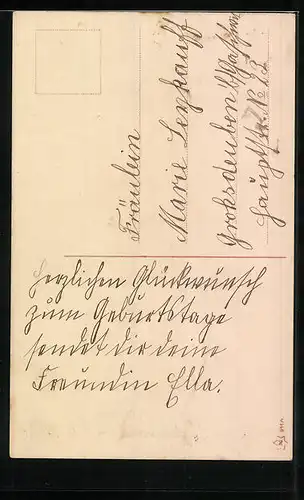 Fräulein
Marie
Großdeuben b/
Hauptstr. No 23
Herzlichen Glückwunsch
zum Geburtstage
sendet dir deine
Freundin Ella.